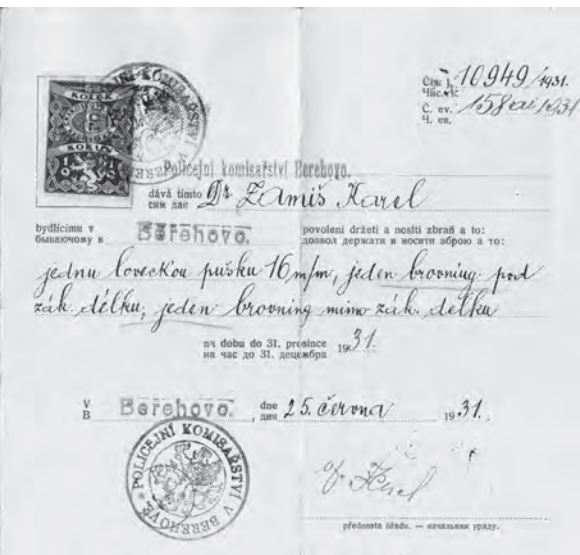 KOLEK
KORUN
Čís. j. 10949/1931.
Č. ev. 158
Ч. ев.
Policejní komisařství Berehovo.
dává tímto Dr. Zamiš Karel
сим дае
bydlícímu v Berehovo. povolení držeti a nositi zbraň a to:
бываючому в дозвол держати и носити зброю а то:
jednu loveckou pušku 16 m/m, jeden browning pod
zák. délku, jeden browning mimo zák. délku
na dobu do 31. prosince 1931.
на час до 31. децембра
V Berehovo. dne 25. června 1931.
В дня
POLICEJNÍ KOMISAŘSTVÍ V BEREHOVĚ
přednosta úřadu. — начальник уряду.